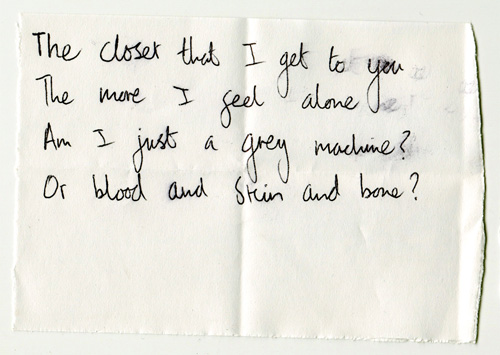 The closer that I get to you
The more I feel alone
Am I just a grey machine?
Or blood and skin and bone?